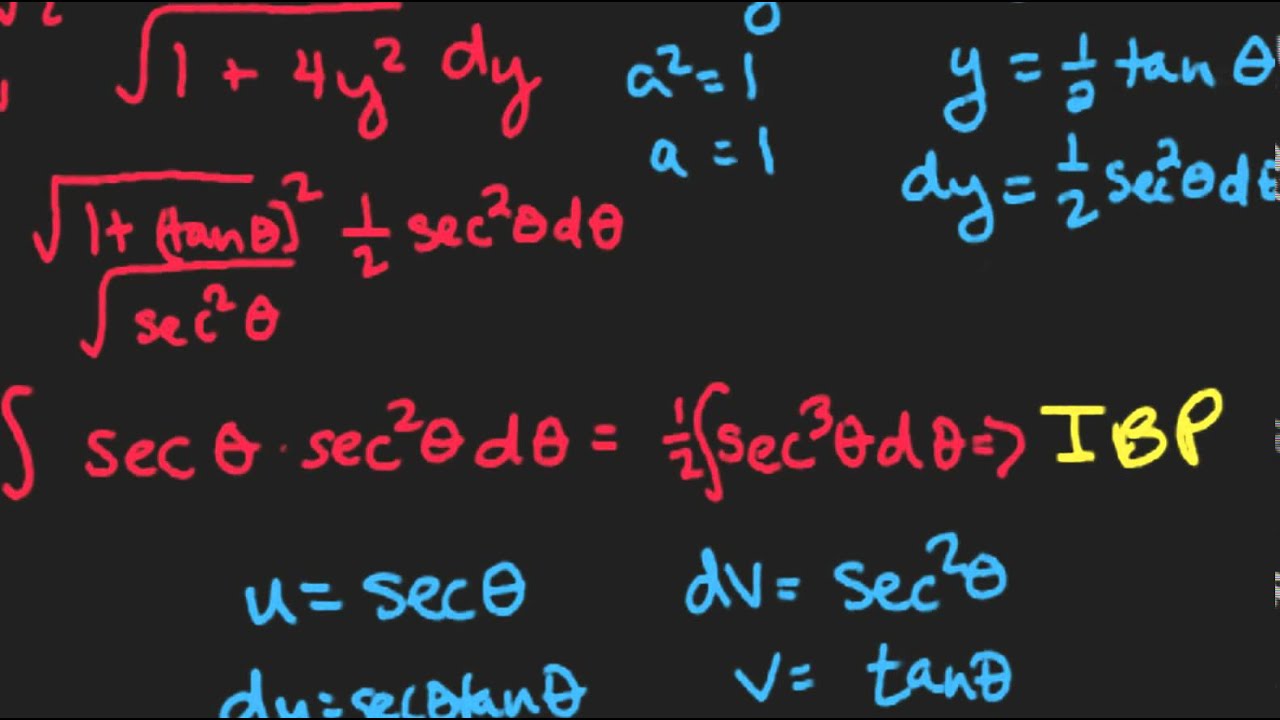 √1 + 4y² dy
a² = 1
a = 1
y = 1/2 tan θ
dy = 1/2 sec²θ dθ
√1 + (tan θ)² 1/2 sec²θ dθ
√sec²θ
∫ sec θ · sec²θ dθ = 1/2 ∫ sec³θ dθ ⇒ IBP
u = sec θ
dv = sec²θ
du = sec θ tan θ
v = tan θ